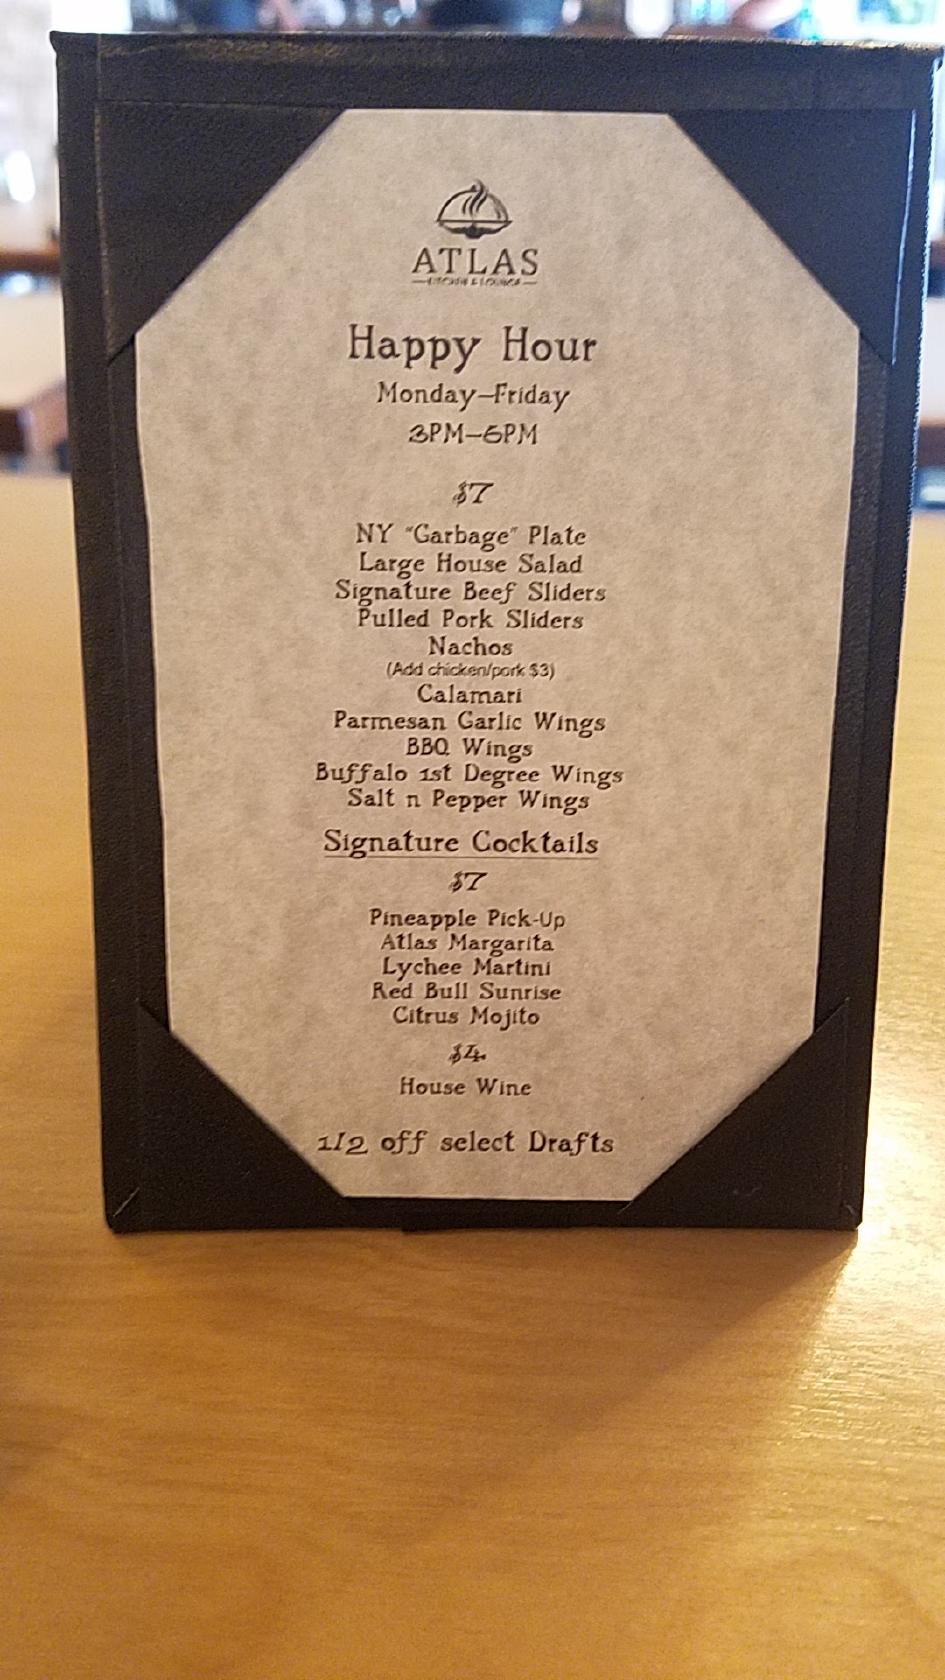 ATLAS
KITCHEN & LOUNGE
Happy Hour
Monday–Friday
3PM–6PM
$7
NY "Garbage" Plate
Large House Salad
Signature Beef Sliders
Pulled Pork Sliders
Nachos
(Add chicken/pork $3)
Calamari
Parmesan Garlic Wings
BBQ Wings
Buffalo 1st Degree Wings
Salt n Pepper Wings
Signature Cocktails
$7
Pineapple Pick-Up
Atlas Margarita
Lychee Martini
Red Bull Sunrise
Citrus Mojito
$4
House Wine
1/2 off select Drafts